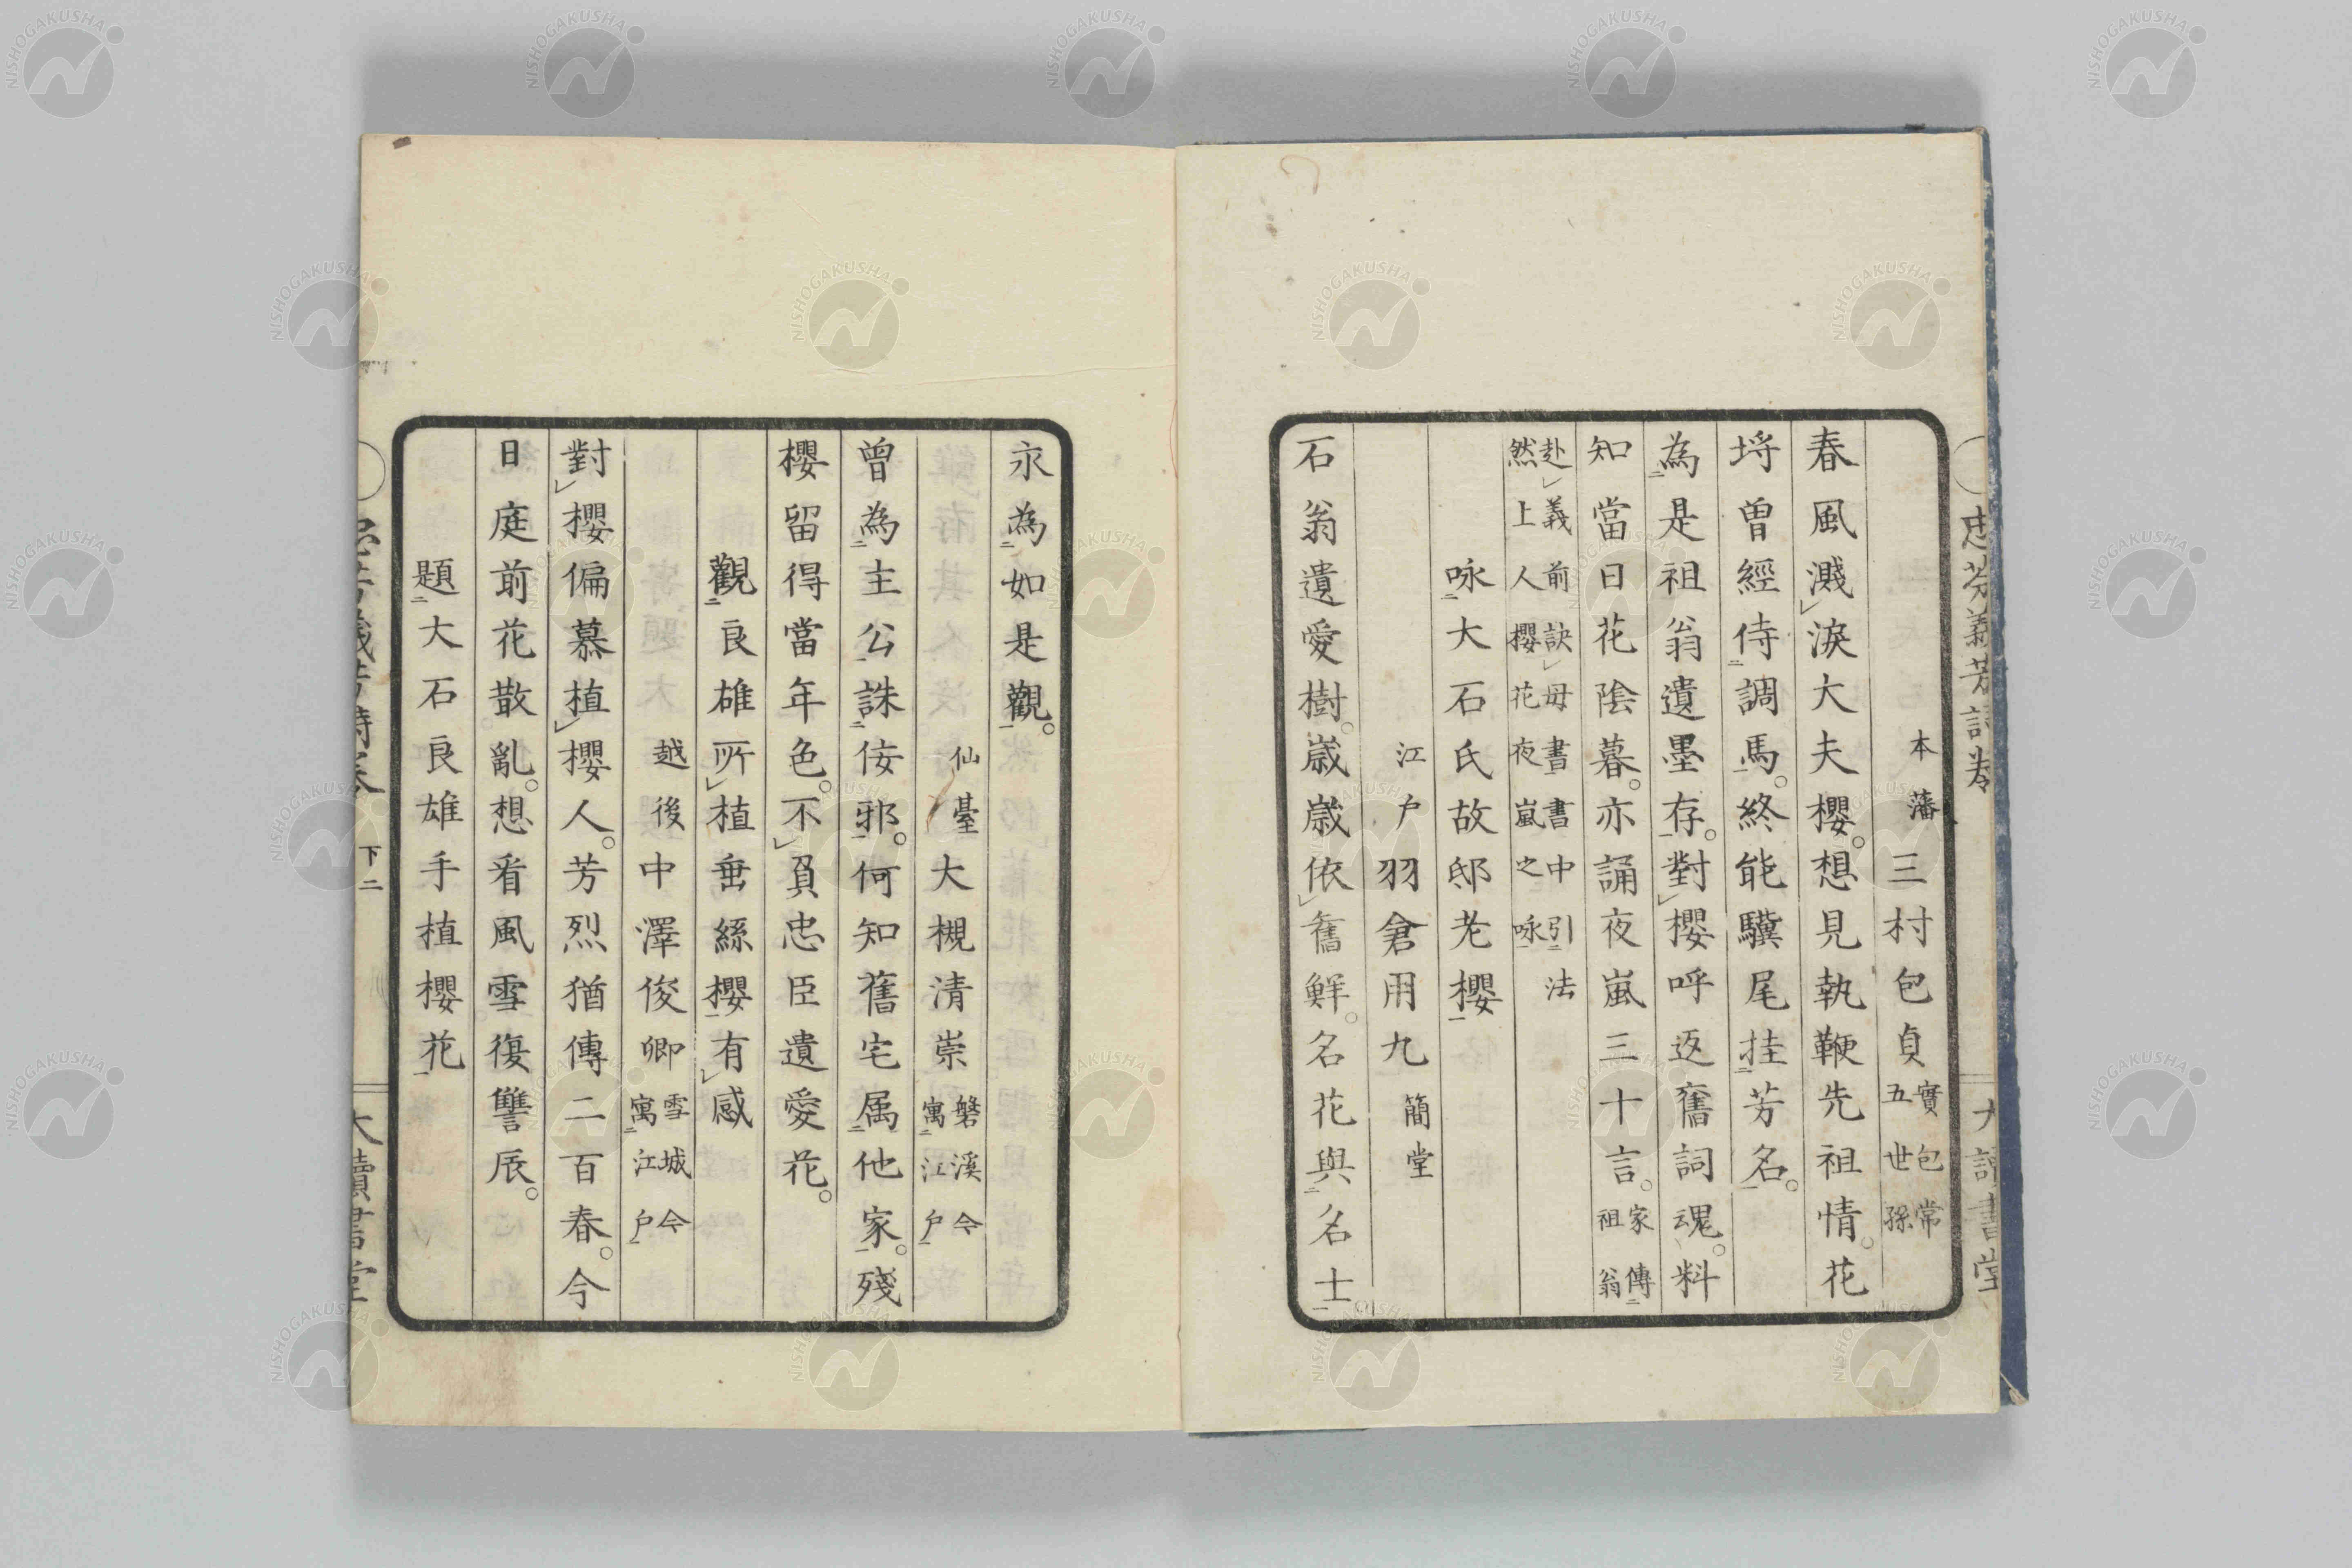 忠芬義芳詩巻
大讀書堂
本藩三村包貞實包常五世孫
春風濺淚大夫櫻。想見執鞭先祖情。花
埒曽經侍調馬。終能驥尾挂芳名。
為是祖翁遺墨存。對櫻呼返舊詞魂。料
知當日花陰暮。亦誦夜嵐三十言。家傳祖翁
赴義前訣母書書中引法然上人櫻花夜嵐之咏
咏大石氏故邸老櫻
江戸羽倉用九簡堂
石翁遺愛樹。歲歲依舊鮮。名花與名士
永為如是觀。
仙臺大槻清崇磐溪今寓江戸
曽為主公誅侫邪。何知舊宅属他家。殘
櫻留得當年色。不負忠臣遺愛花。
觀良雄所植垂絲櫻有感
越後中澤俊卿雪城今寓江戸
對櫻偏慕植櫻人。芳烈猶傳二百春。今
日庭前花散亂。想看風雪復讐辰。
題大石良雄手植櫻花
下二
大讀書堂
NISHOGAKUSHA